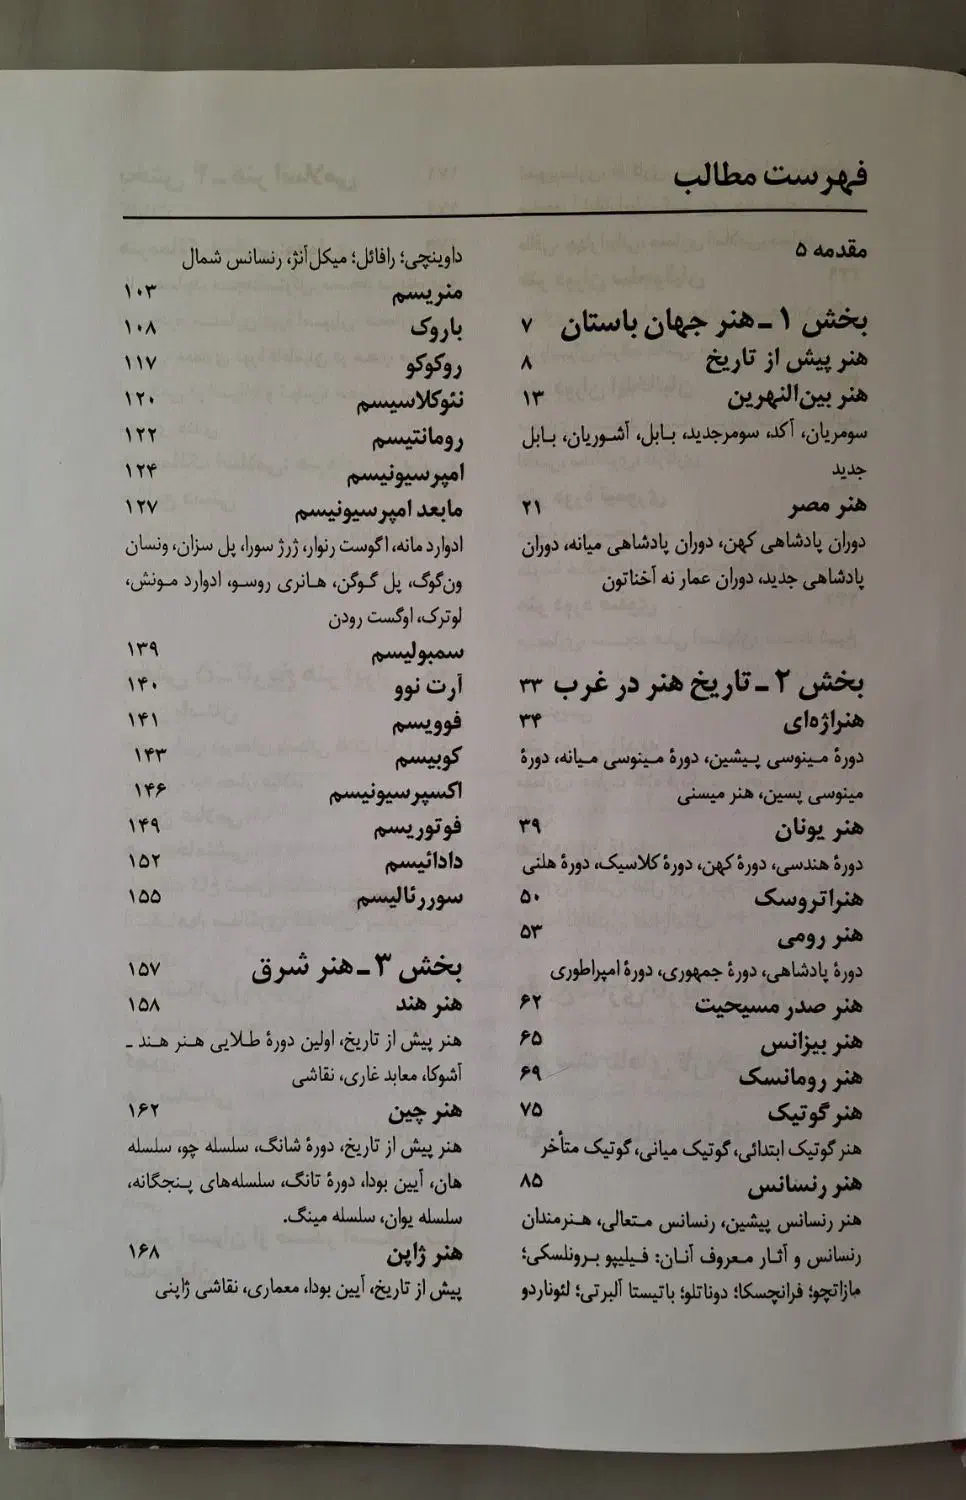 فهرست مطالب
مقدمه ۵
بخش ۱ ـ هنر جهان باستان ۷
هنر پیش از تاریخ ۸
هنر بین‌النهرین ۱۳
سومریان، آکد، سومرجدید، بابل، آشوریان، بابل
جدید
هنر مصر ۲۱
دوران پادشاهی کهن، دوران پادشاهی میانه، دوران
پادشاهی جدید، دوران عمار نه آخناتون
بخش ۲ ـ تاریخ هنر در غرب ۳۳
هنراژه‌ای ۳۴
دورهٔ مینوسی پیشین، دورهٔ مینوسی میانه، دورهٔ
مینوسی پسین، هنر میسنی
هنر یونان ۳۹
دورهٔ هندسی، دورهٔ کهن، دورهٔ کلاسیک، دورهٔ هلنی
هنراتروسک ۵۰
هنر رومی ۵۳
دورهٔ پادشاهی، دورهٔ جمهوری، دورهٔ امپراطوری
هنر صدر مسیحیت ۶۲
هنر بیزانس ۶۵
هنر رومانسک ۶۹
هنر گوتیک ۷۵
هنر گوتیک ابتدائی، گوتیک میانی، گوتیک متأخر
هنر رنسانس ۸۵
هنر رنسانس پیشین، رنسانس متعالی، هنرمندان
رنسانس و آثار معروف آنان: فیلیپو برونلسکی؛
مازاتچو؛ فرانچسکا؛ دوناتلو؛ باتیستا آلبرتی؛ لئوناردو
داوینچی؛ رافائل؛ میکل‌آنژ، رنسانس شمال
منریسم ۱۰۳
باروک ۱۰۸
روکوکو ۱۱۷
نئوکلاسیسم ۱۲۰
رومانتیسم ۱۲۲
امپرسیونیسم ۱۲۴
مابعد امپرسیونیسم ۱۲۷
ادوارد مانه، اگوست رنوار، ژرژ سورا، پل سزان، ونسان
ون‌گوگ، پل گوگن، هانری روسو، ادوارد مونش،
لوترک، اوگست رودن
سمبولیسم ۱۳۹
آرت نوو ۱۴۰
فوویسم ۱۴۱
کوبیسم ۱۴۳
اکسپرسیونیسم ۱۴۶
فوتوریسم ۱۴۹
دادائیسم ۱۵۲
سوررئالیسم ۱۵۵
بخش ۳ ـ هنر شرق ۱۵۷
هنر هند ۱۵۸
هنر پیش از تاریخ، اولین دورهٔ طلایی هنر هند ـ
آشوکا، معابد غاری، نقاشی
هنر چین ۱۶۲
هنر پیش از تاریخ، دورهٔ شانگ، سلسله چو، سلسله
هان، آیین بودا، دورهٔ تانگ، سلسله‌های پنجگانه،
سلسله یوان، سلسله مینگ.
هنر ژاپن ۱۶۸
پیش از تاریخ، آیین بودا، معماری، نقاشی ژاپنی